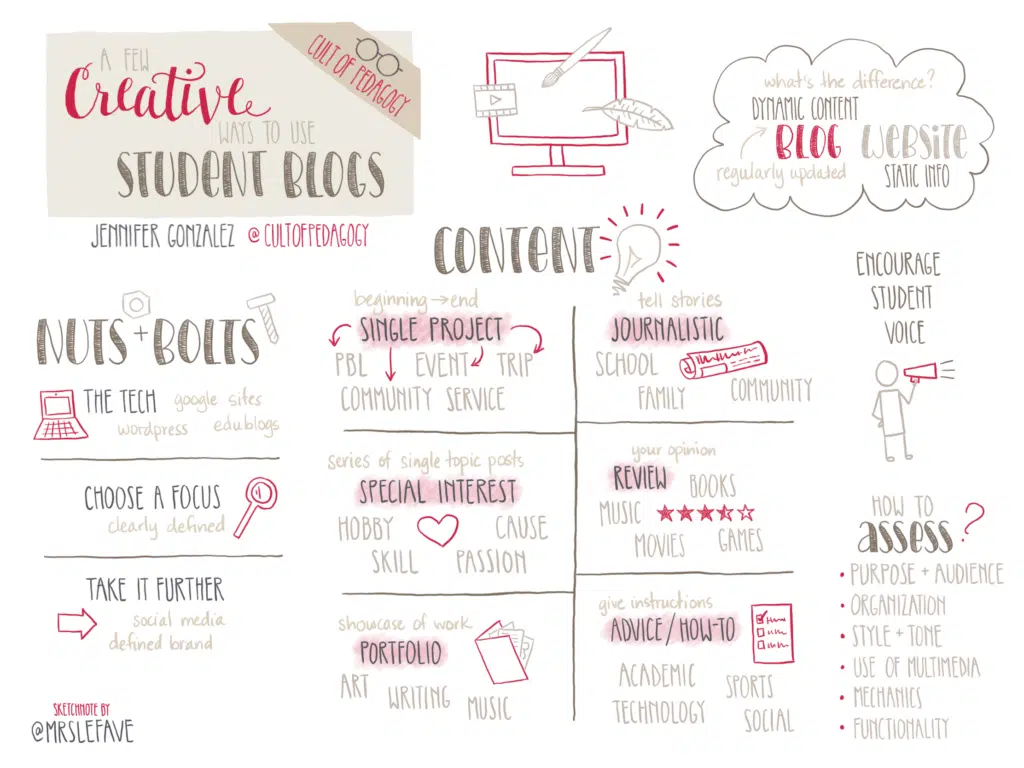 A FEW
Creative
WAYS TO USE
STUDENT BLOGS
CULT OF PEDAGOGY
JENNIFER GONZALEZ @CULTOFPEDAGOGY
what's the difference?
DYNAMIC CONTENT
BLOG WEBSITE
regularly updated STATIC INFO
CONTENT
NUTS + BOLTS
THE TECH google sites
wordpress edublogs
CHOOSE A FOCUS
clearly defined
TAKE IT FURTHER
social media
defined brand
beginning → end
SINGLE PROJECT
PBL EVENT TRIP
COMMUNITY SERVICE
series of single topic posts
SPECIAL INTEREST
HOBBY CAUSE
SKILL PASSION
showcase of work
PORTFOLIO
ART WRITING MUSIC
tell stories
JOURNALISTIC
SCHOOL
FAMILY COMMUNITY
your opinion
REVIEW BOOKS
MUSIC
MOVIES GAMES
give instructions
ADVICE/HOW-TO
ACADEMIC SPORTS
TECHNOLOGY SOCIAL
ENCOURAGE
STUDENT
VOICE
HOW TO
assess?
• PURPOSE + AUDIENCE
• ORGANIZATION
• STYLE + TONE
• USE OF MULTIMEDIA
• MECHANICS
• FUNCTIONALITY
SKETCHNOTE BY
@MRSLEFAVE